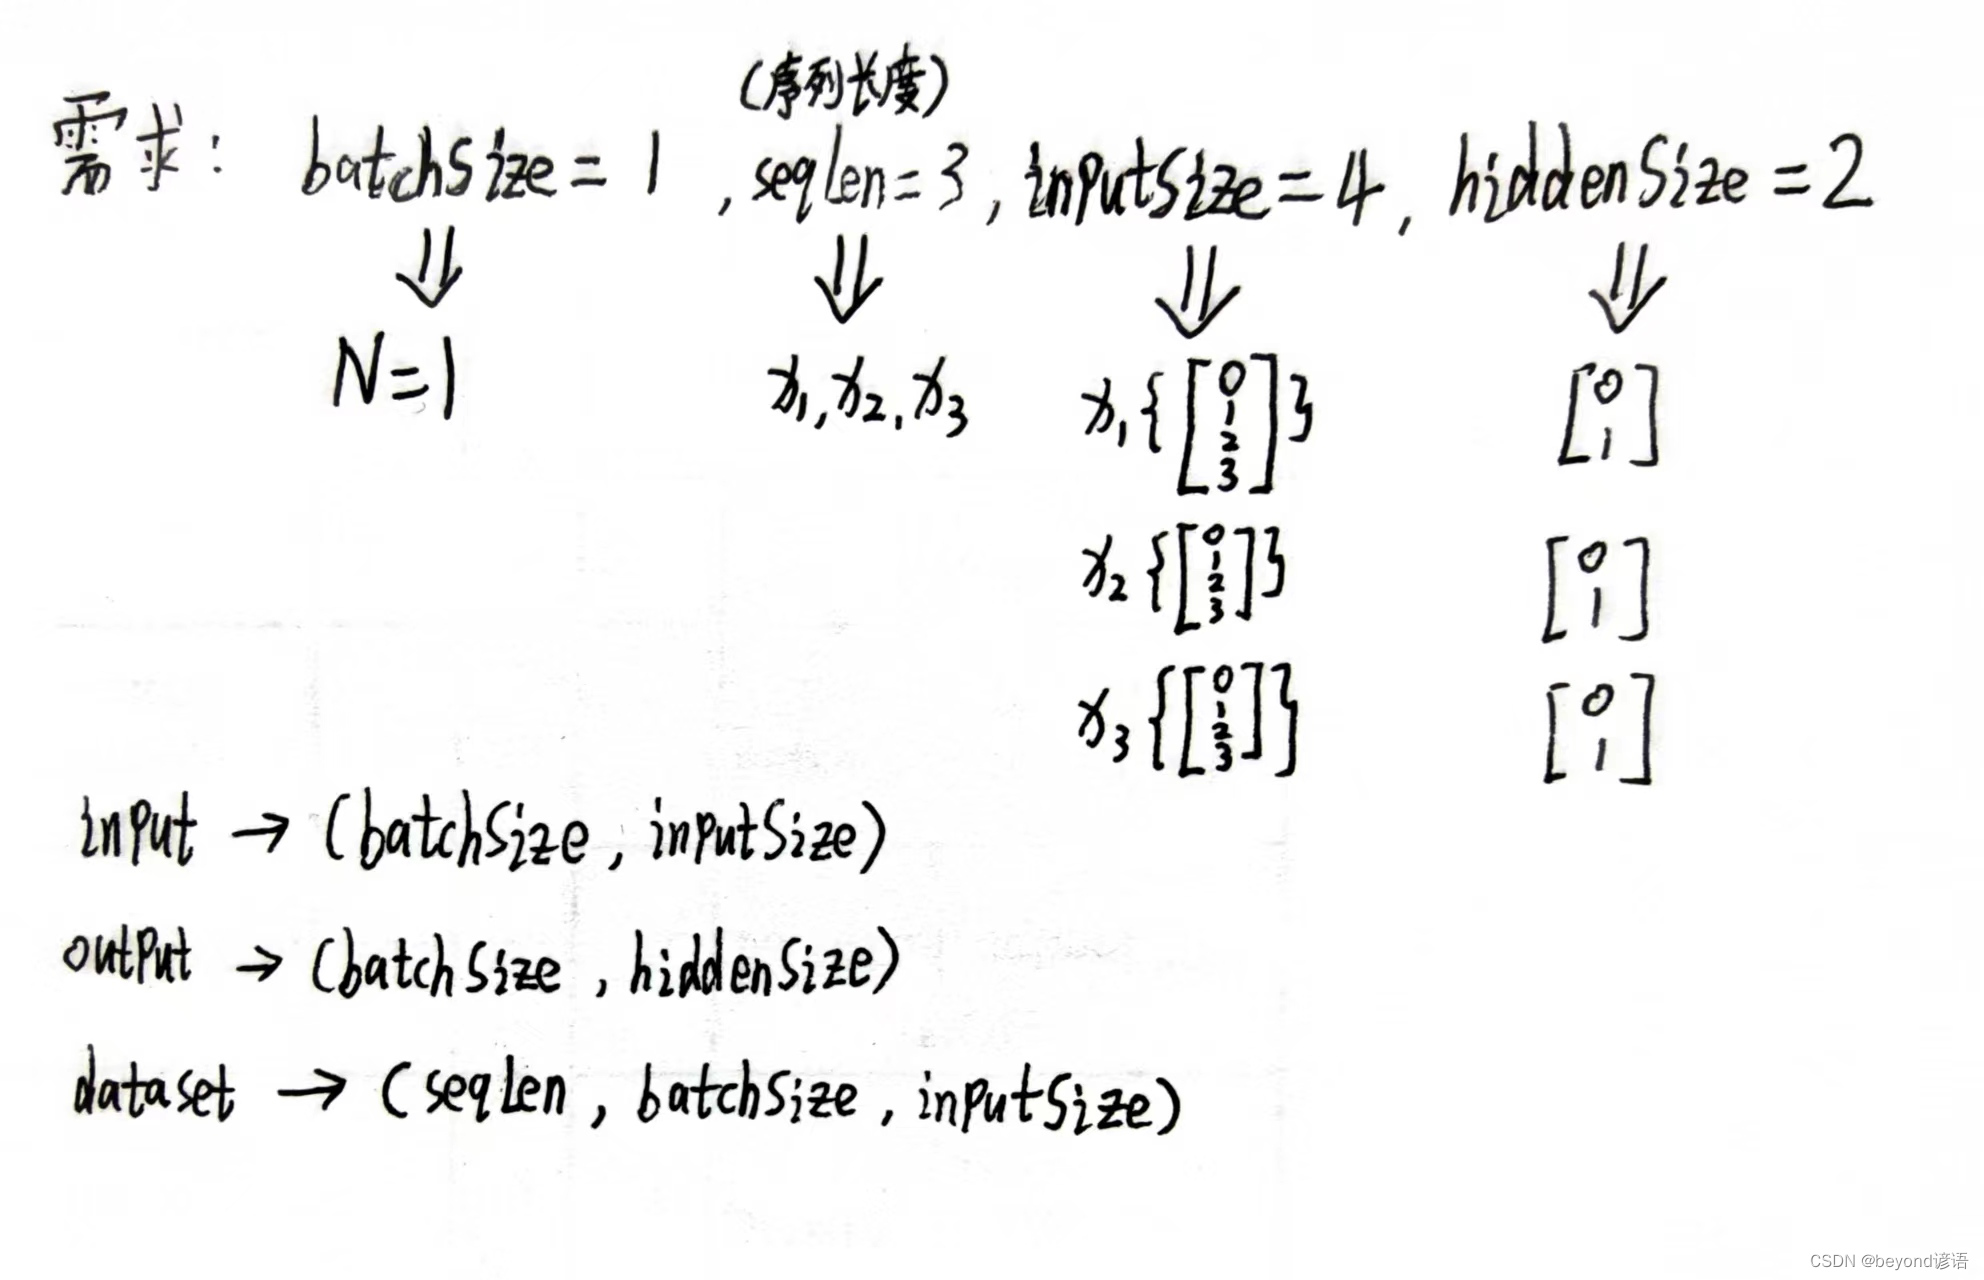 (序列长度)
需求: batchSize = 1 , seqLen = 3 , inputSize = 4 , hiddenSize = 2
⇓ ⇓ ⇓ ⇓
N=1 x₁, x₂, x₃ x₁{[0 1 2 3]} [0 1]
x₂{[0 1 2 3]} [0 1]
x₃{[0 1 2 3]} [0 1]
input → (batchSize , inputSize)
output → (batchSize , hiddenSize)
dataset → (seqLen , batchSize , inputSize)
CSDN @beyond谚语